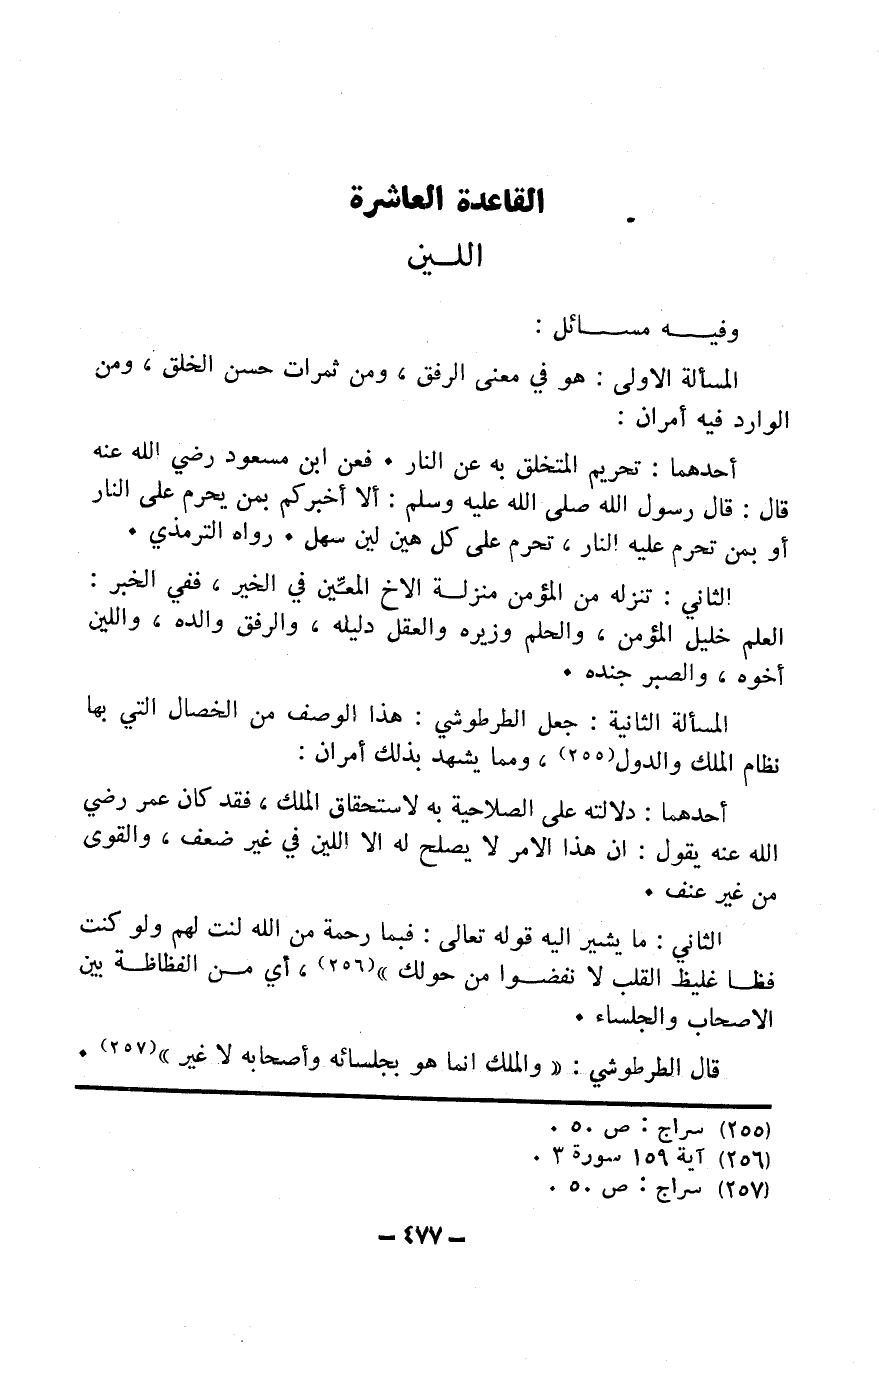 القاعدة العاشرة
اللـين
وفيـه مسـائل :
المسألة الاولى : هو في معنى الرفق ، ومن ثمرات حسن الخلق ، ومن
الوارد فيه أمران :
أحدهما : تحريم المتخلق به عن النار • فعن ابن مسعود رضي الله عنه
قال : قال رسول الله صلى الله عليه وسلم : ألا أخبركم بمن يحرم على النار
أو بمن تحرم عليه النار ، تحرم على كل هين لين سهل • رواه الترمذي •
الثاني : تنزله من المؤمن منزلـة الاخ المعيّن في الخير ، ففي الخبر :
العلم خليل المؤمن ، والحلم وزيره والعقل دليله ، والرفق والده ، واللين
أخوه ، والصبر جنده •
المسألة الثانية : جعل الطرطوشي : هذا الوصف من الخصال التي بها
نظام الملك والدول(٢٥٥) ، ومما يشهد بذلك أمران :
أحدهما : دلالته على الصلاحية به لاستحقاق الملك ، فقد كان عمر رضي
الله عنه يقول : ان هذا الامر لا يصلح له الا اللين في غير ضعف ، والقوى
من غير عنف •
الثاني : ما يشير اليه قوله تعالى : فبما رحمة من الله لنت لهم ولو كنت
فظـا غليظ القلب لا نفضـوا من حولك »(٢٥٦) ، أي مـن الفظاظـة بين
الاصحاب والجلساء •
قال الطرطوشي : « والملك انما هو بجلسائه وأصحابه لا غير »(٢٥٧) •
(٢٥٥) سراج : ص ٥٠ .
(٢٥٦) آية ١٥٩ سورة ٣ .
(٢٥٧) سراج : ص ٥٠ .
– ٤٧٧ –